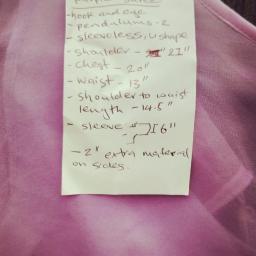 - hook and eye
- pendulums - 2
- sleeveless, U shape
- shoulder - 21"
- chest - 20"
- waist - 13"
- shoulder to waist
length - 14.5"
- sleeve 6"
- 2" extra material
on sides.